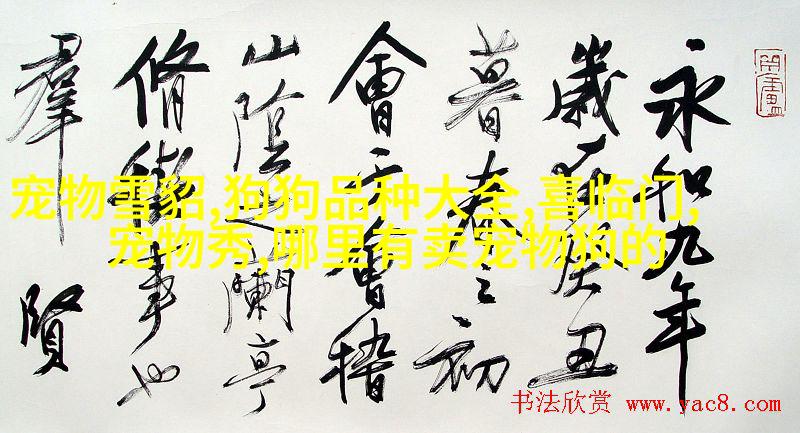 永和九年
歲在癸丑
暮春之初
會于會稽
山陰之蘭亭
脩稧事也
羣賢
宠物雪貂,狗狗品种大全,喜临门,
宠物秀,哪里有卖宠物狗的
书法欣赏 www.yac8.com